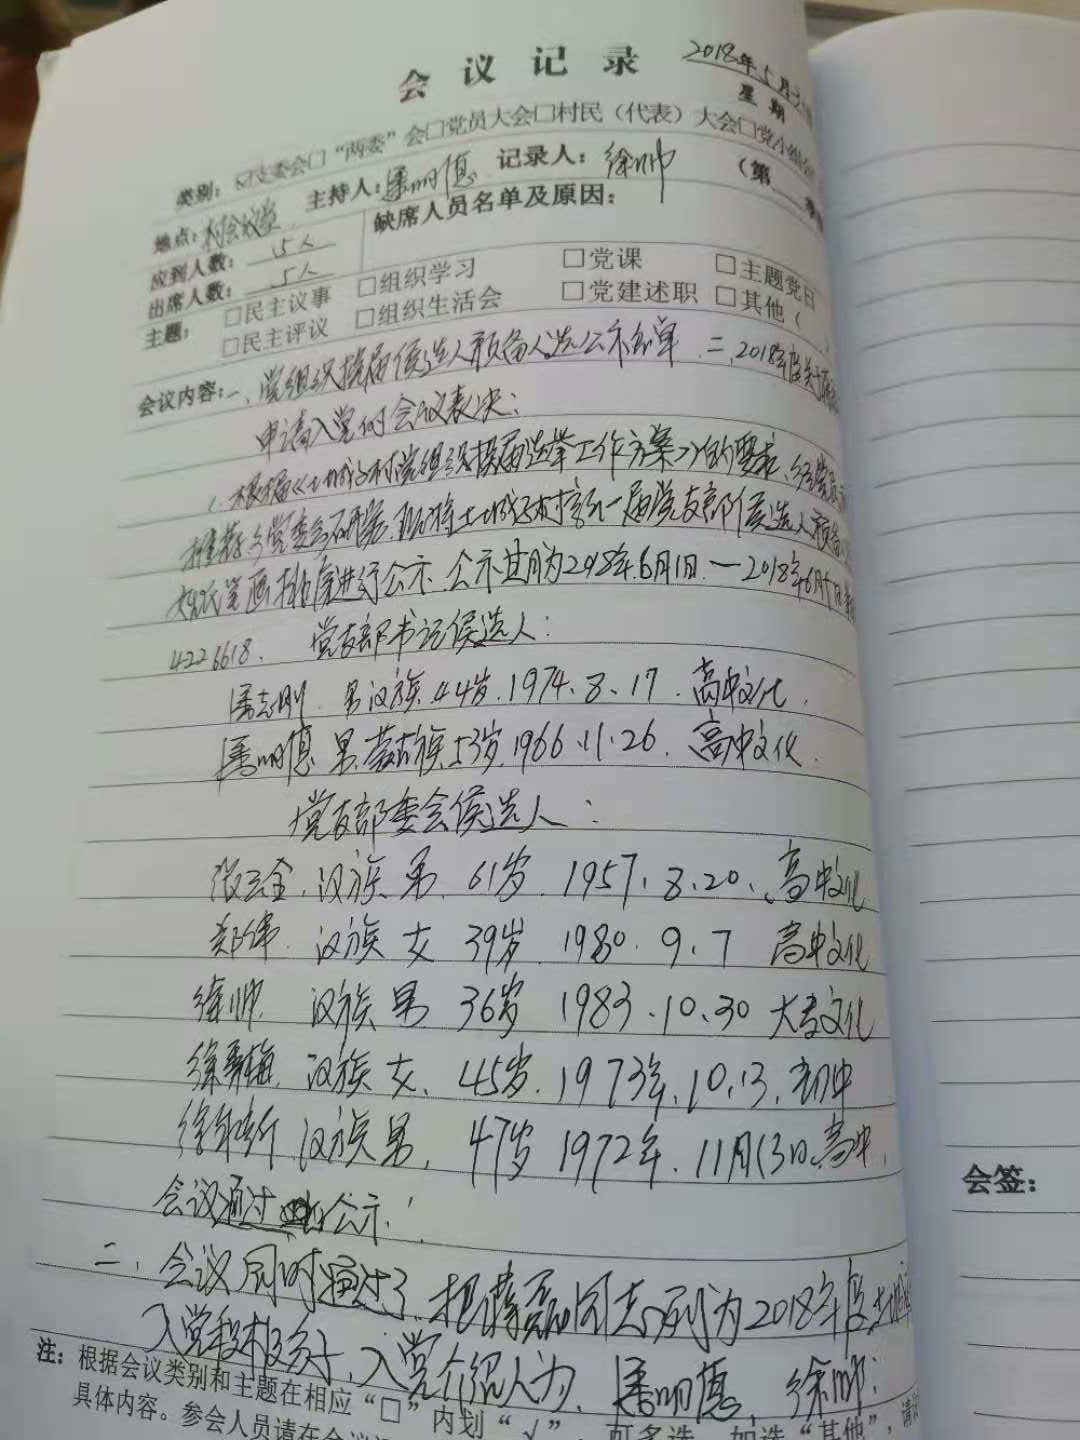 会议记录 2018年5月
星期
类别: ☑支委会□“两委”会□党员大会□村民（代表）大会□党小组
地点: 村会议室 主持人: 明德 记录人: 徐帅 （第
应到人数: 5人 缺席人员名单及原因:
出席人数: 5人
主题: □民主议事 □组织学习 □党课 □主题党日
□民主评议 □组织生活会 □党建述职 □其他（
会议内容: 一、党组织换届候选人预备人选公示名单. 二、2018年度关于
申请入党的会议表决:
1. 根据《土城子村党组织换届选举工作方案》的要求、经党员
推荐、党委会研究.现将土城子村新一届党支部候选人预备
姓氏笔画排序进行公示.公示其月为2018年.6月1日.—2018年6月
4226618. 党支部书记候选人:
志刚. 男 汉族. 44岁. 1974、8、17. 高中文化.
明德 男. 蒙古族. 53岁. 1966.11.26. 高中文化.
党支部委会候选人:
张云全. 汉族. 男. 61岁. 1957、8、20、高中文化
郑伟. 汉族 女 39岁. 1980.9.7 高中文化
徐帅. 汉族 男 36岁 1983.10、30 大专文化
徐 梅. 汉族 女、45岁. 1973年.10.13.初中
徐 汉族 男. 47岁 1972年. 11月13日.高中.
会议通过 公示.
二. 会议同时通过了. 把 同志列为2018年度
入党积极分子, 入党介绍人为. 明德、徐帅.
注: 根据会议类别和主题在相应“□”内划“√”，可多选，如选“其他”，请
具体内容。参会人员请在会议
会签: